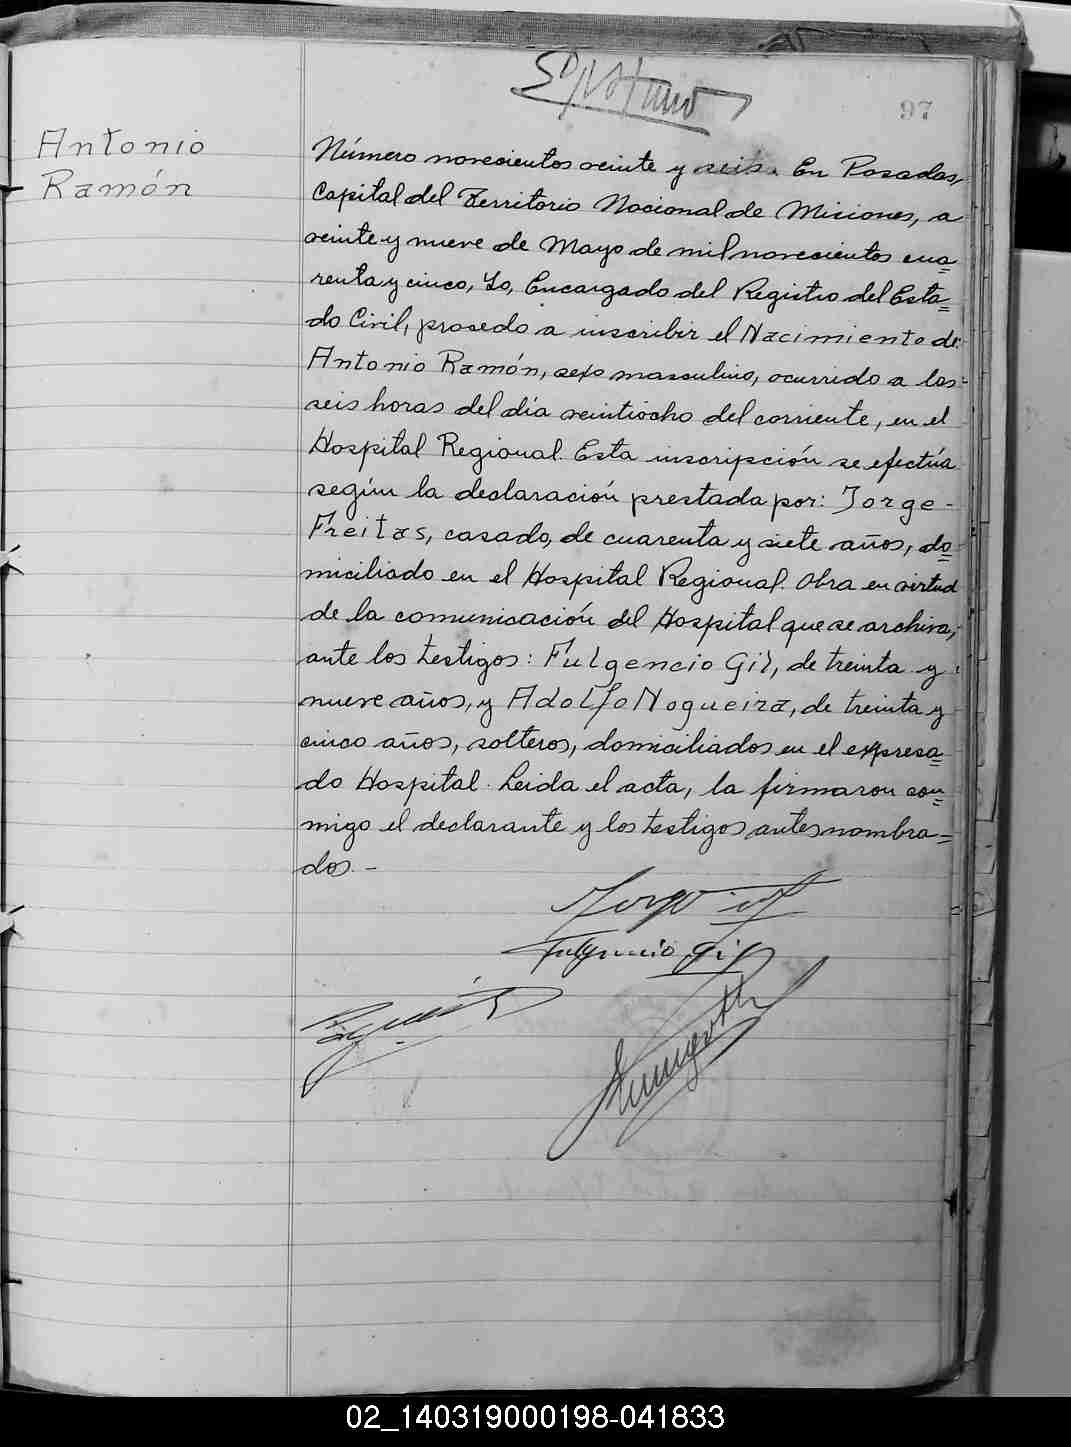 97
Antonio
Ramón
Número novecientos veinte y seis. En Posadas,
Capital del Territorio Nacional de Misiones, a
veinte y nueve de Mayo de mil novecientos cua=
renta y cinco, Yo, Encargado del Registro del Esta=
do Civil, prosedo a inscribir el Nacimiento de:
Antonio Ramón, sexo masculino, ocurrido a las=
seis horas del día veintiocho del corriente, en el
Hospital Regional. Esta inscripción se efectúa
según la declaración prestada por: Jorge-
Freitas, casado, de cuarenta y siete años, do=
miciliado en el Hospital Regional. Obra en virtud
de la comunicación del Hospital que se archiva,
ante los testigos: Fulgencio Gil, de treinta y
nueve años, y Adolfo Nogueira, de treinta y
cinco años, solteros, domiciliados en el expresa=
do Hospital. Leida el acta, la firmaron con=
migo el declarante y los testigos antes nombra=
dos.-
Fulgencio Gil
02_140319000198-041833